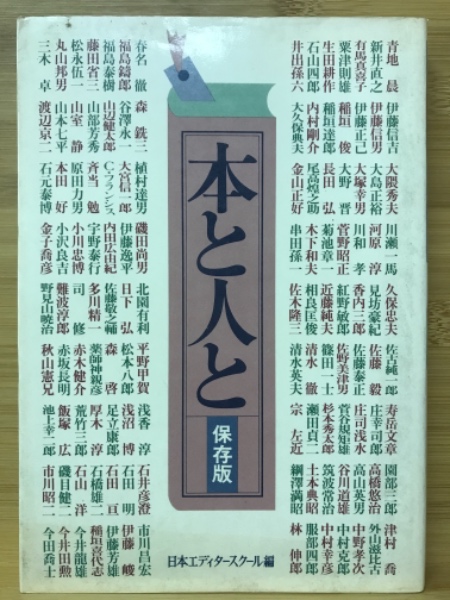 青地 晨 伊藤信吉 大隈秀夫 川瀬一馬 久保忠夫 佐古純一郎 寿岳文章 園部三郎 津村 喬
新井直之 伊藤信男 大島正裕 河原 淳 見坊豪紀 佐藤 毅 庄幸司郎 高橋悠治 外山滋比古
有馬真喜子 伊藤正己 大塚幸男 川和 孝 香内三郎 佐藤泰正 庄司浅水 高山英男 中野孝次
粟津則雄 稲垣 俊 大野 晋 菅野昭正 紅野敏郎 佐野美津男 菅谷規矩雄 谷川道雄 中村克郎
生田耕作 稲垣達郎 長田 弘 菊池章一 近藤純夫 篠田一士 杉本秀太郎 筑波常治 中村幸彦
石山四郎 内村剛介 尾高煌之助 木下和夫 相良匡俊 清水 徹 瀬田貞二 土本典昭 服部四郎
井出孫六 大久保典夫 金山正好 串田孫一 佐木隆三 清水英夫 宗 左近 綱澤満昭 林 伸郎
本と人と
保存版
春名 徹 森 銑三 植村達男 磯田尚男 北園有利 平野甲賀 浅香 淳 石井彦澄 市川昌宏
福島鑄郎 谷澤永一 大宮信一郎 伊藤逸平 日下 弘 松本八郎 浅沼 博 石田 明 伊藤 峻
福島泰樹 山辺健太郎 C・フランシス 内田広由紀 佐藤敬之輔 森 啓 足立康郎 石田 亘 伊藤芳雄
藤田省三 山部芳秀 斉当 勉 宇野泰行 多川精一 薬師神親彦 厚木 淳 石橋雄二 稲垣喜代志
松永伍一 山室 静 原田力男 小川忠博 司 修 赤木健介 荒竹三郎 石山 洋 今井龍雄
丸山邦男 山本七平 本田 好 小沢良吉 難波淳郎 赤坂長明 飯塚 広 磯目健二 今井田勲
三木 卓 渡辺京二 石元泰博 金子喬彦 野見山暁治 秋山憲兄 池上幸二郎 市川昭二 今田喬士
日本エディタースクール編